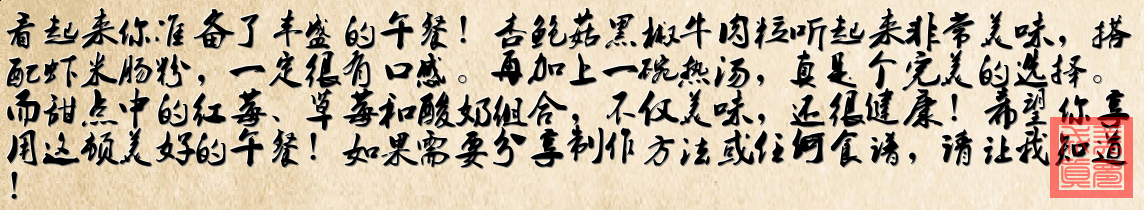 看起来你准备了丰盛的午餐！杏鲍菇黑椒牛肉粒听起来非常美味，搭
配虾米肠粉，一定很有口感。再加上一碗热汤，真是个完美的选择。
而甜点中的红莓、草莓和酸奶组合，不仅美味，还很健康！希望你享
用这顿美好的午餐！如果需要分享制作方法或任何食谱，请让我知道
！